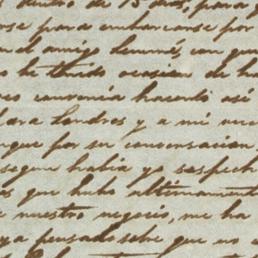 dentro de 15 dias, para
se para embarcarse por
el amigo
he tenido ocasion de ha
convenia hacerlo así
para Londres y a mi
que por su conversacion
segun habia ya sospech
es que hubo ultimamente
e nuestro negocio, me ha
ya pensado sobre que no